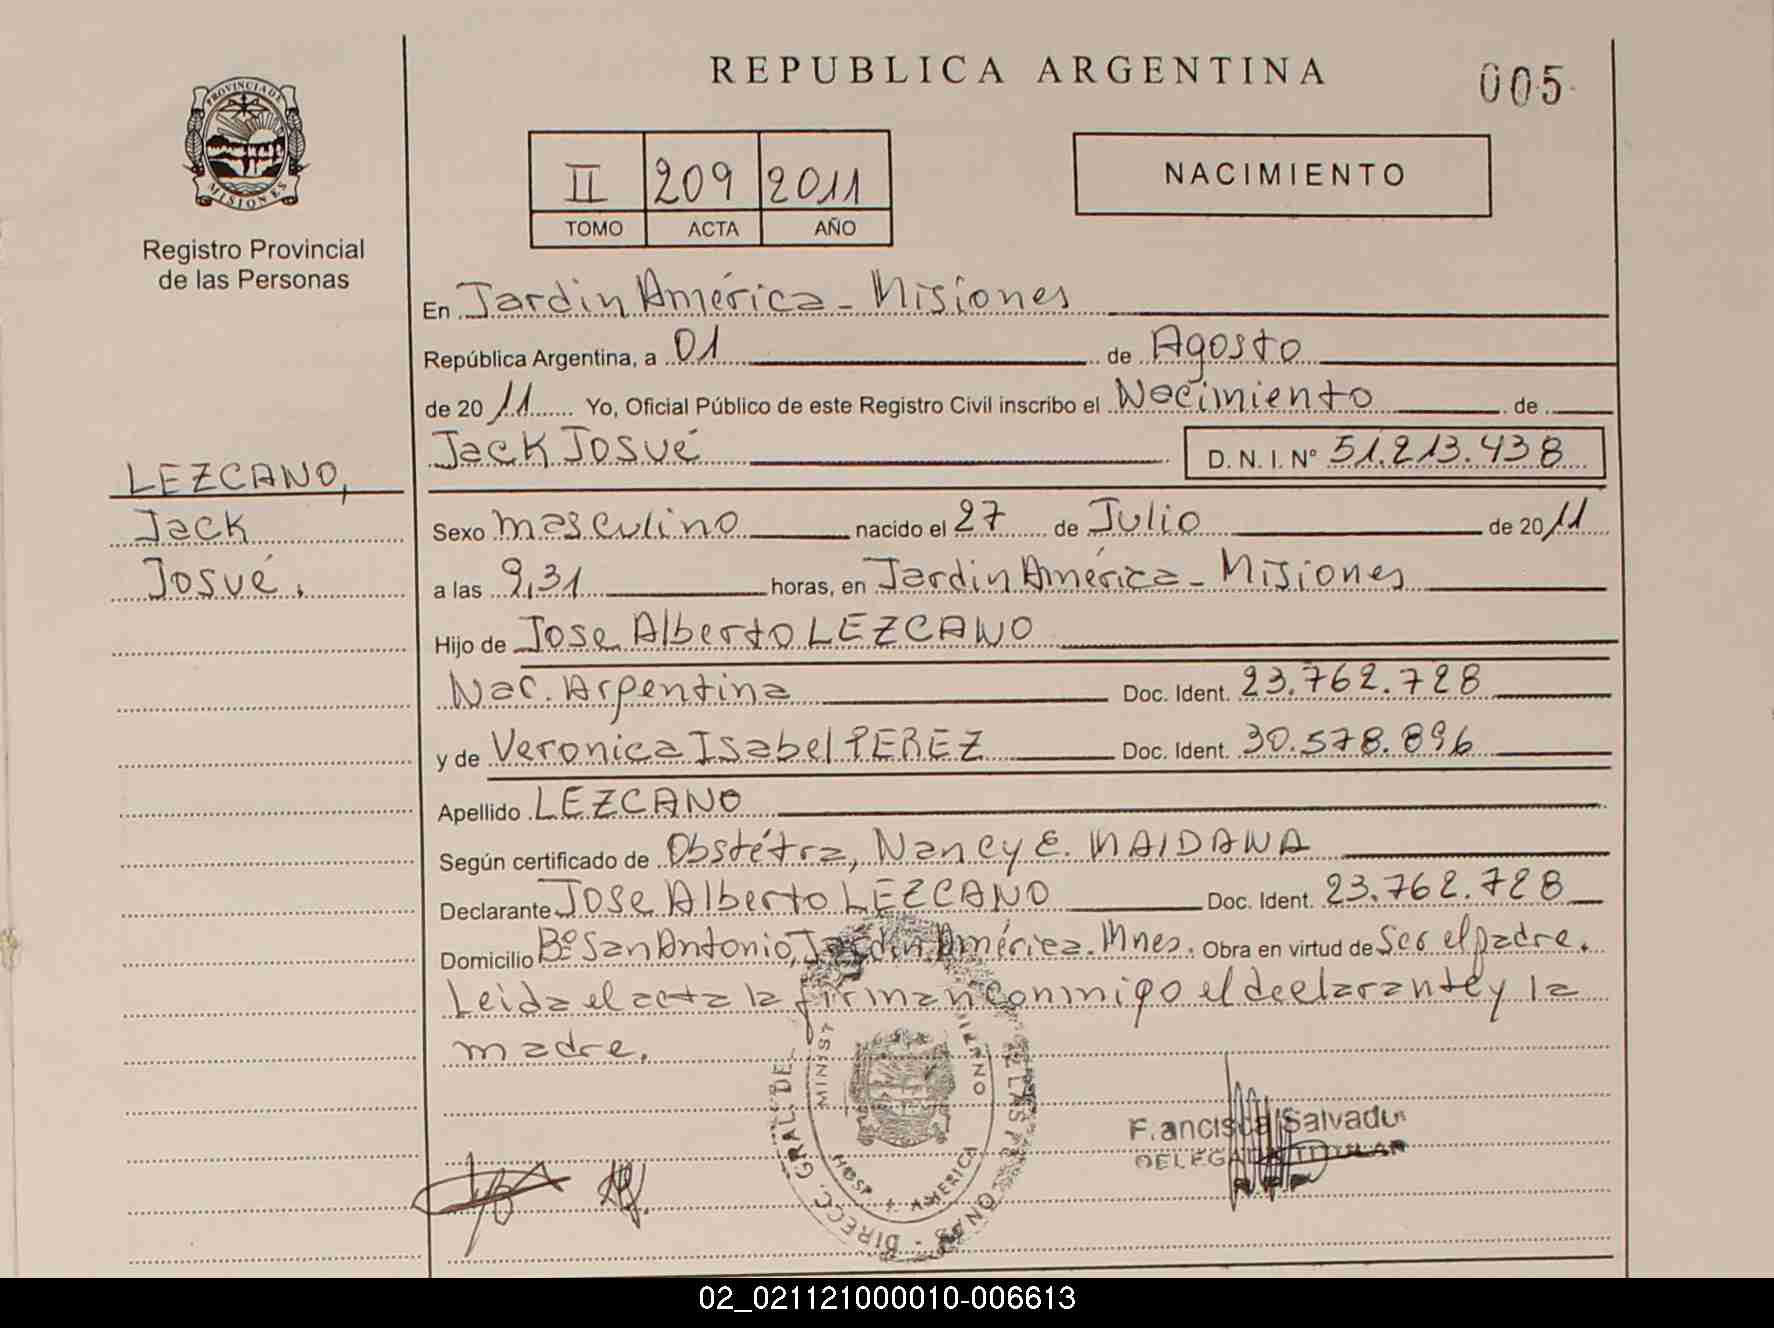 REPUBLICA ARGENTINA
005
PROVINCIA DE
MISIONES
Registro Provincial
de las Personas
II 209 2011
TOMO ACTA AÑO
NACIMIENTO
En Jardin América - Misiones
República Argentina, a 01 de Agosto
de 2011 Yo, Oficial Público de este Registro Civil inscribo el Nacimiento de
Jack Josué D. N. I. Nº 51.213.438
LEZCANO,
Jack
Josué.
Sexo masculino nacido el 27 de Julio de 2011
a las 9,31 horas, en Jardin América - Misiones
Hijo de Jose Alberto LEZCANO
Nac. Argentina Doc. Ident. 23.762.728
y de Veronica Isabel PEREZ Doc. Ident. 30.578.896
Apellido LEZCANO
Según certificado de Obstétra, Nancy E. MAIDANA
Declarante Jose Alberto LEZCANO Doc. Ident. 23.762.728
Domicilio Bº San Antonio, Jardin América. Mnes. Obra en virtud de Ser el padre.
Leida el acta la firman conmigo el declarante y la
madre.
DIRECC. GRAL. DE
HOSP
AMERICA
Francisca Salvador
DELEGADA TITULAR
02_021121000010-006613